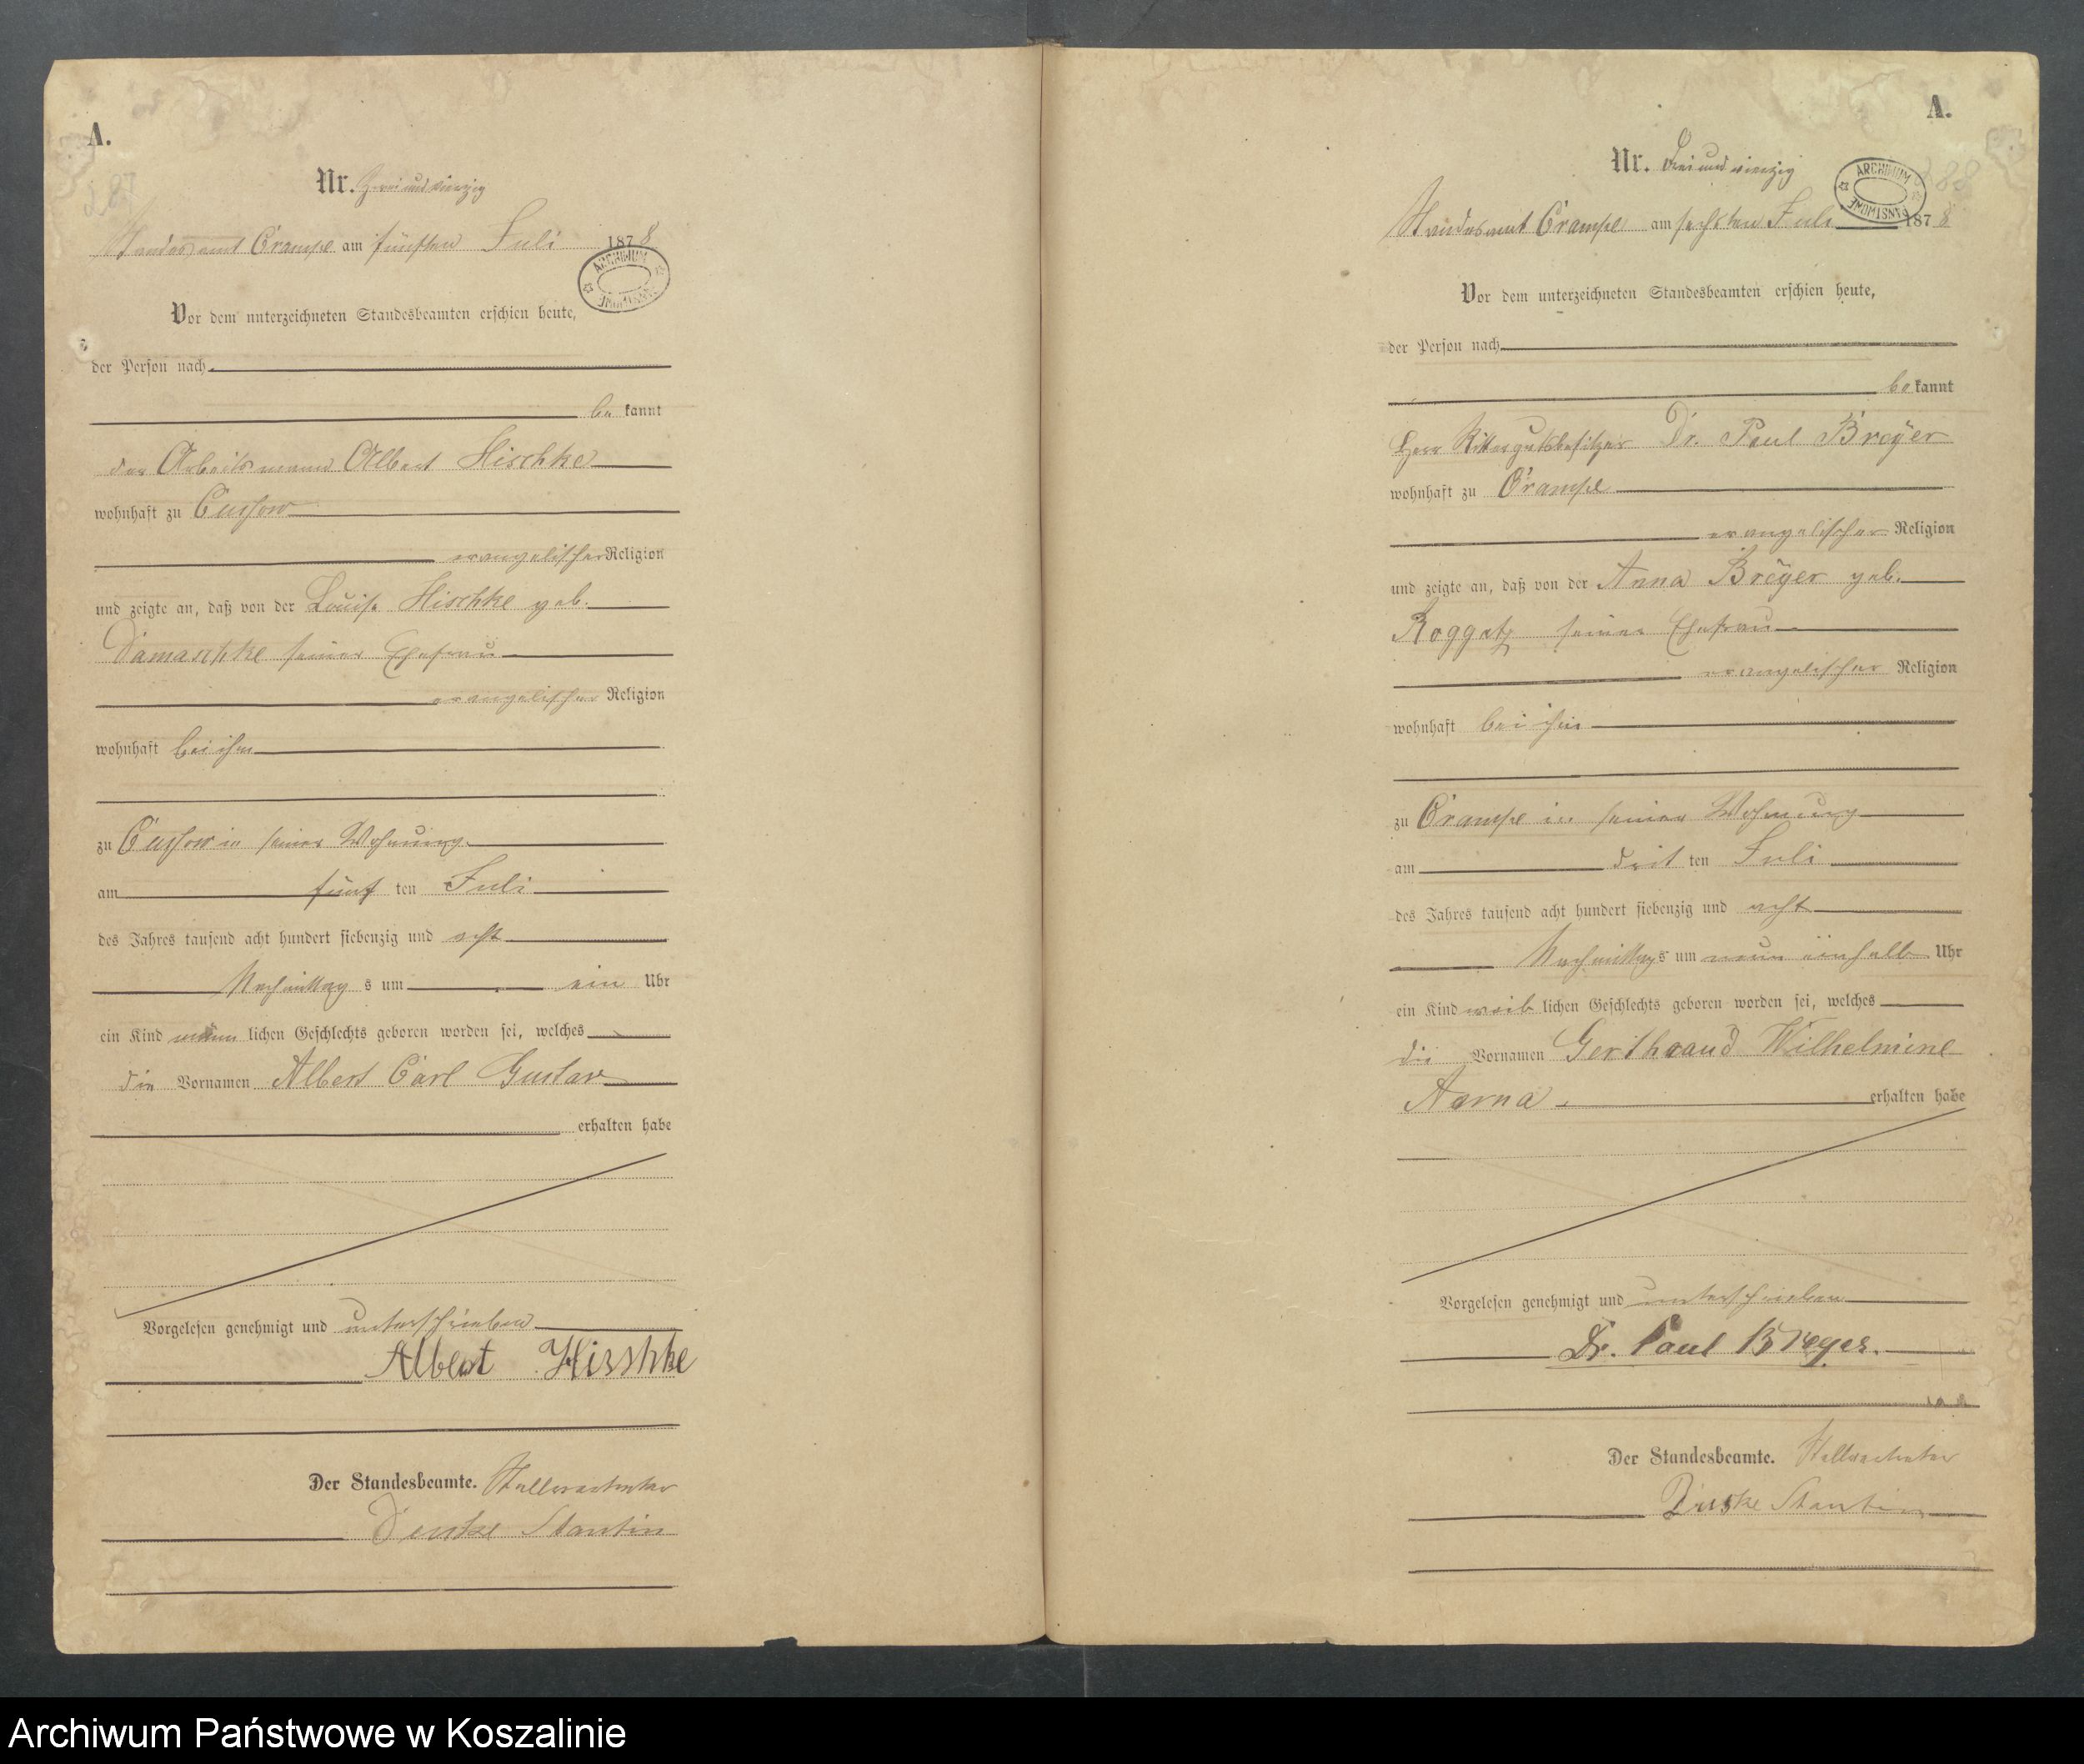 A.
287
Nr. Zwei und vierzig
Standesamt Crampe am fünften Juli 1878
ARCHIWUM PAŃSTWOWE
Vor dem unterzeichneten Standesbeamten erschien heute,
der Person nach
bekannt
der Arbeitsmann Albert Hischke
wohnhaft zu Cussow
evangelischer Religion
und zeigte an, daß von der Louise Hischke geb.
Damaschke seiner Ehefrau
evangelischer Religion
wohnhaft bei ihm
zu Cussow in seiner Wohnung
am fünf ten Juli
des Jahres tausend acht hundert siebenzig und acht
Nachmittag s um ein Uhr
ein Kind männ lichen Geschlechts geboren worden sei, welches
die Vornamen Albert Carl Gustav
erhalten habe
Vorgelesen genehmigt und unterschrieben
Albert Hisshke
Der Standesbeamte. Stellvertreter
Stantin
A.
288
Nr. Drei und vierzig
ARCHIWUM PAŃSTWOWE
Standesamt Crampe am sechsten Juli 1878
Vor dem unterzeichneten Standesbeamten erschien heute,
der Person nach
bekannt
Herr Rittergutsbesitzer Dr. Paul Breÿer
wohnhaft zu Crampe
evangelischer Religion
und zeigte an, daß von der Anna Breÿer geb.
Roggatz seiner Ehefrau
evangelischer Religion
wohnhaft bei ihm
zu Crampe in seiner Wohnung
am drit ten Juli
des Jahres tausend acht hundert siebenzig und acht
Nachmittags um neun einhalb Uhr
ein Kind weib lichen Geschlechts geboren worden sei, welches
die Vornamen Gerthraud Wilhelmine
Anna erhalten habe
Vorgelesen genehmigt und unterschrieben
Dr. Paul Breyer.
Der Standesbeamte. Stellvertreter
Stantin
Archiwum Państwowe w Koszalinie